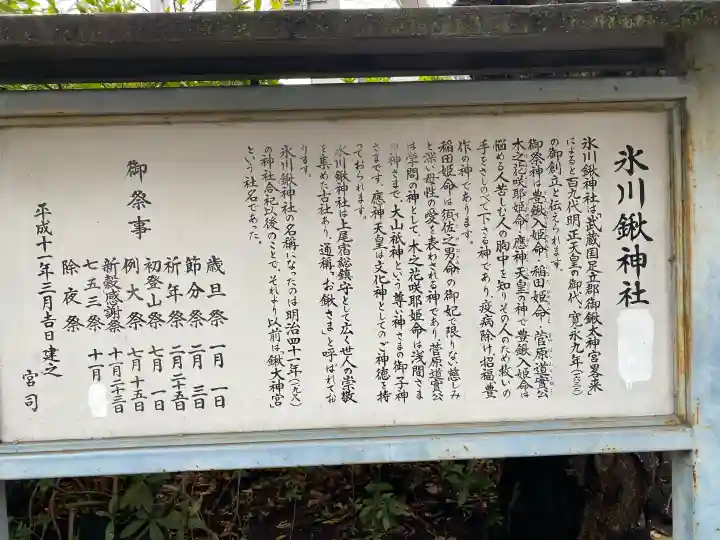 氷川鍬神社
氷川鍬神社は「武蔵国足立郡御鍬太神宮畧来
によると百九代明正天皇の御代、寛永九年(一六三二)
の御創立と伝えられます。
御祭神は豊鍬入姫命、稲田姫命、菅原道實公
木之花咲耶姫命、應神天皇の神で豊鍬入姫命は
悩める人苦しむ人の胸中を知りその人のため救いの
手をさしのべて下さる神であり、疫病除け招福、豊
作の神であります。
稲田姫命は須佐之男命の御妃で限りない慈しみ
と深い母性の愛を表わされる神であり、菅原道實公
は学問の神として、木之花咲耶姫命は浅間さま
の神さまで、大山祇神という尊い神さまの御子神
さまです。應神天皇は文化神としてのご神徳を持
っておられます。
氷川鍬神社は上尾宿総鎮守として広く世人の崇敬
を集めた古社あり、通稱、「お鍬さま」と呼ばれてお
ります。
氷川鍬神社の名稱になったのは明治四十一年(一九〇八)
の神社合祀以後のことで、それより以前は鍬大神宮
という社名であった。
御祭事
歳旦祭 一月一日
節分祭 二月三日
祈年祭 二月二十五日
初登山祭 七月一日
例大祭 七月十五日
新穀感謝祭 十一月二十三日
七五三祭 十一月
除夜祭
平成十一年三月吉日建之
宮司